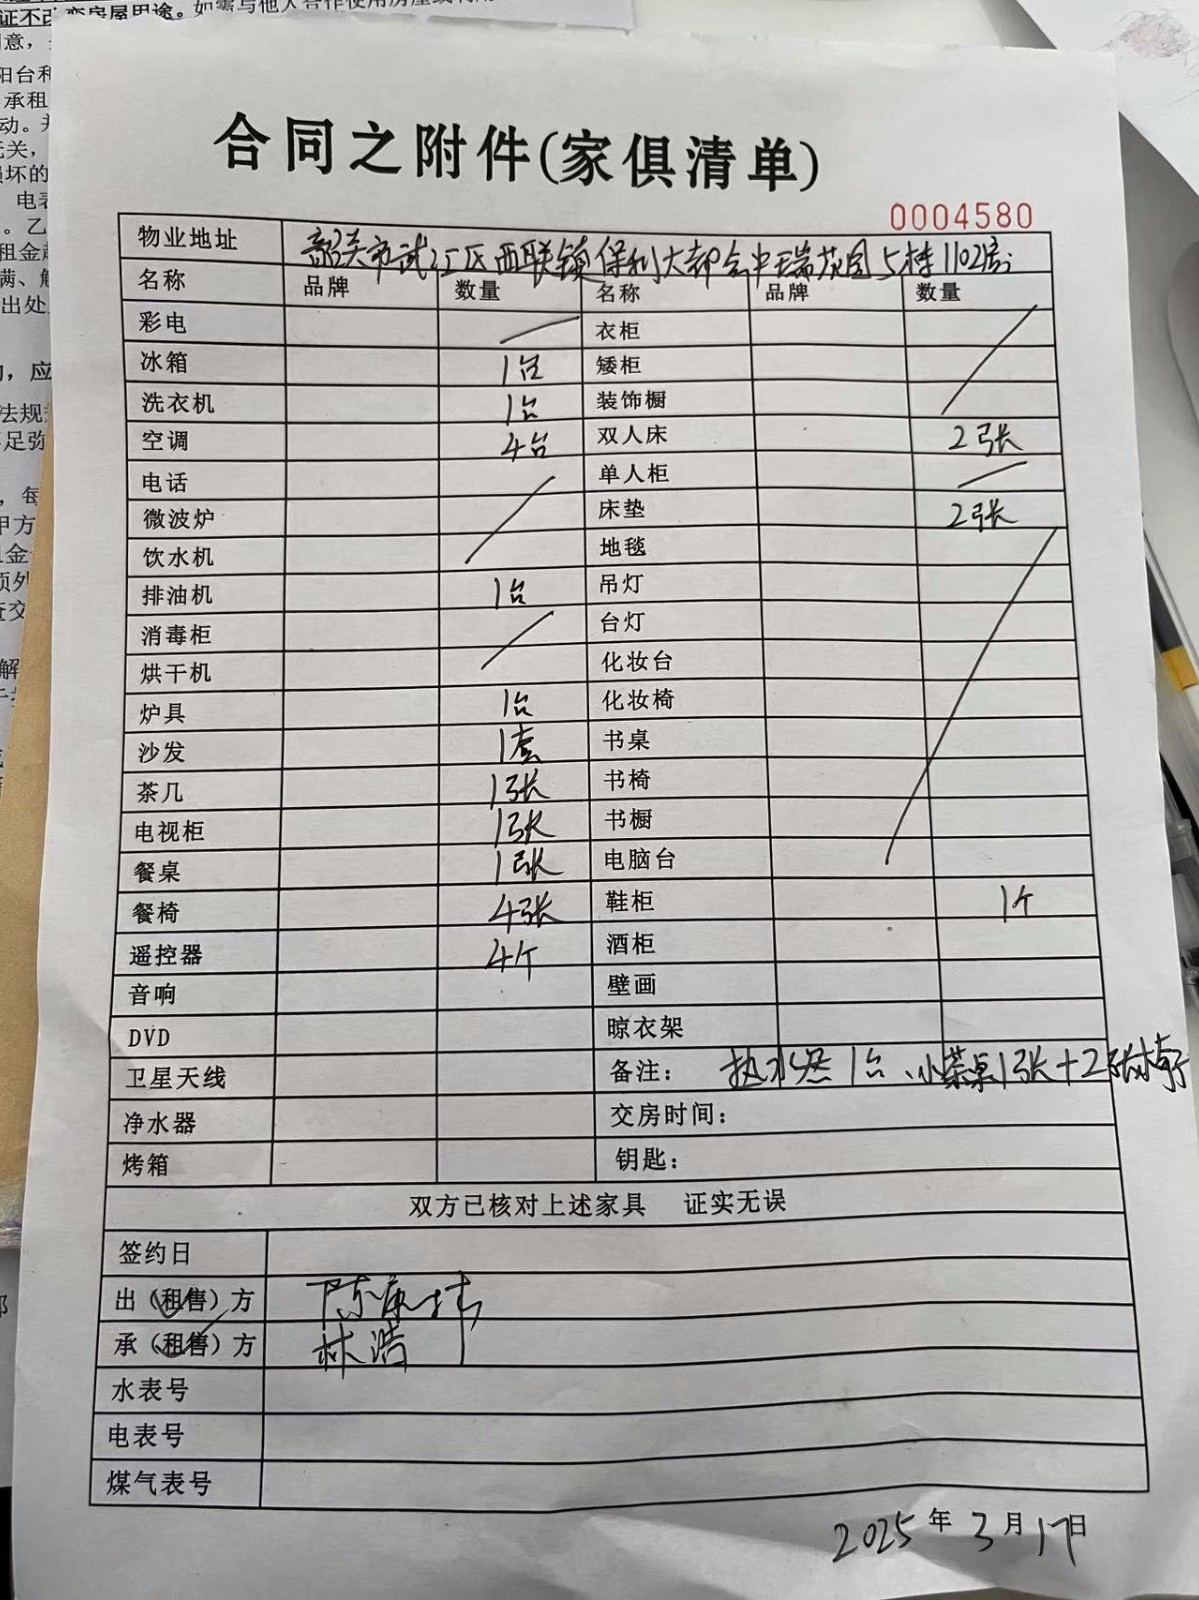 证不改变房屋用途。如需与他人合作使用房屋或利用
阳台和
承租
合同之附件(家俱清单)
0004580
物业地址 韶关市武江区西联镇保利大都会中瑞花园5栋1102房
名称 品牌 数量 名称 品牌 数量
彩电 衣柜
冰箱 1台 矮柜
洗衣机 1台 装饰橱
空调 4台 双人床 2张
电话 单人柜
微波炉 床垫 2张
饮水机 地毯
排油机 1台 吊灯
消毒柜 台灯
烘干机 化妆台
炉具 1台 化妆椅
沙发 1套 书桌
茶几 1张 书椅
电视柜 1张 书橱
餐桌 1张 电脑台
餐椅 4张 鞋柜 1个
遥控器 4个 酒柜
音响 壁画
DVD 晾衣架
卫星天线 备注: 热水器1台、小茶桌1张+2张椅子
净水器 交房时间:
烤箱 钥匙:
双方已核对上述家具 证实无误
签约日
出(租售)方 陈康玮
承(租售)方 林浩
水表号
电表号
煤气表号
2025年3月17日